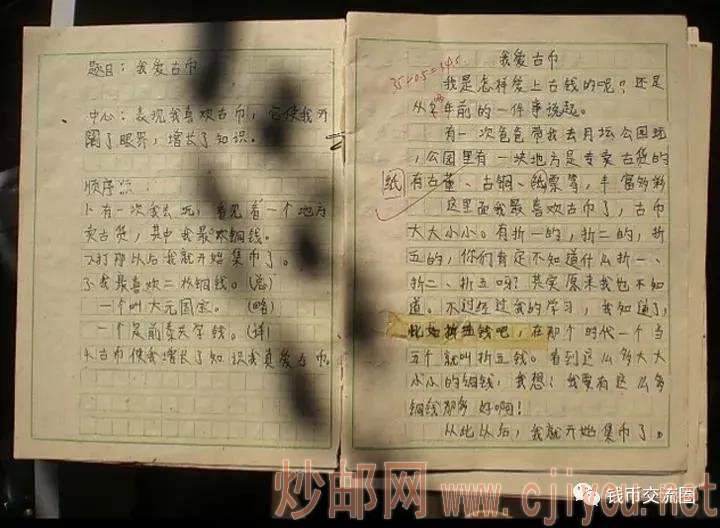 题目：我爱古币
中心：表现我喜欢古币，它使我开
阔了眼界，增长了知识。
顺序：
1、有一次我去玩，看见着一个地方
卖古货，其中我最 铜钱。
2、打那以后我就开始集币了。
3、我最喜欢二枚铜钱。（总）
一个叫大元国宝。（略）
一个是前秦天字钱。（详）
4、古币使我增长了知识我真爱古币。
我爱古币
我是怎样爱上古钱的呢？还是
从 年前的一件事说起。
有一次爸爸带我去月坛公园玩
，公园里有一块地方是专卖古货的
有古董、古铜、纸票等，丰富多彩
纸
这里面我最喜欢古币了，古币
大大小小。有折一的，折二的，折
五的，你们肯定不知道什么折一、
折二、折五吧？其实原来我也不知
道。不过经过我的学习，我知道了，
比如折五钱吧，在那个时代一个当
五个就叫折五钱。看到这么多大大
小小的铜钱，我想：我要有这么多
铜钱那多好啊！
从此以后，我就开始集币了。
炒邮网 www.cjiyou.net
钱币交流圈